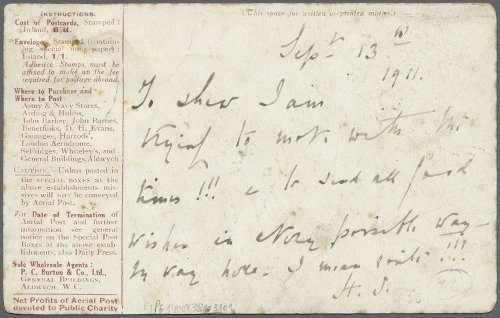 INSTRUCTIONS.
Cost of Postcards, Stamped:
Inland, 6½d.
Envelopes, Stamped (contain-
ing special note paper):
Inland, 1/1.
Adhesive Stamps must be
affixed to make up the fee
required for postage abroad.
Where to Purchase and
Where to Post:
Army & Navy Stores,
Arding & Hobbs,
John Barker, John Barnes,
Benetfinks, D. H. Evans,
Gamages, Harrods',
London Aerodrome,
Selfridges, Whiteley's, and
General Buildings, Aldwych
CAUTION.—Unless posted in
the SPECIAL BOXES at the
above establishments mis-
sives will NOT be conveyed
by Aerial Post.
For Date of Termination of
Aerial Post and further
information see general
notice on the Special Post
Boxes at the above estab-
lishments, also Daily Press.
Sole Wholesale Agents:
P. C. Burton & Co., Ltd.,
GENERAL BUILDINGS,
ALDWYCH, W.C.
Net Profits of Aerial Post
devoted to Public Charity
(This space for written or printed matter.)
Sept 13th
1911.
To shew I am
trying to move with the
times!!! & to send all good
wishes in every possible way
by way here. I mean write!!!
H. S.